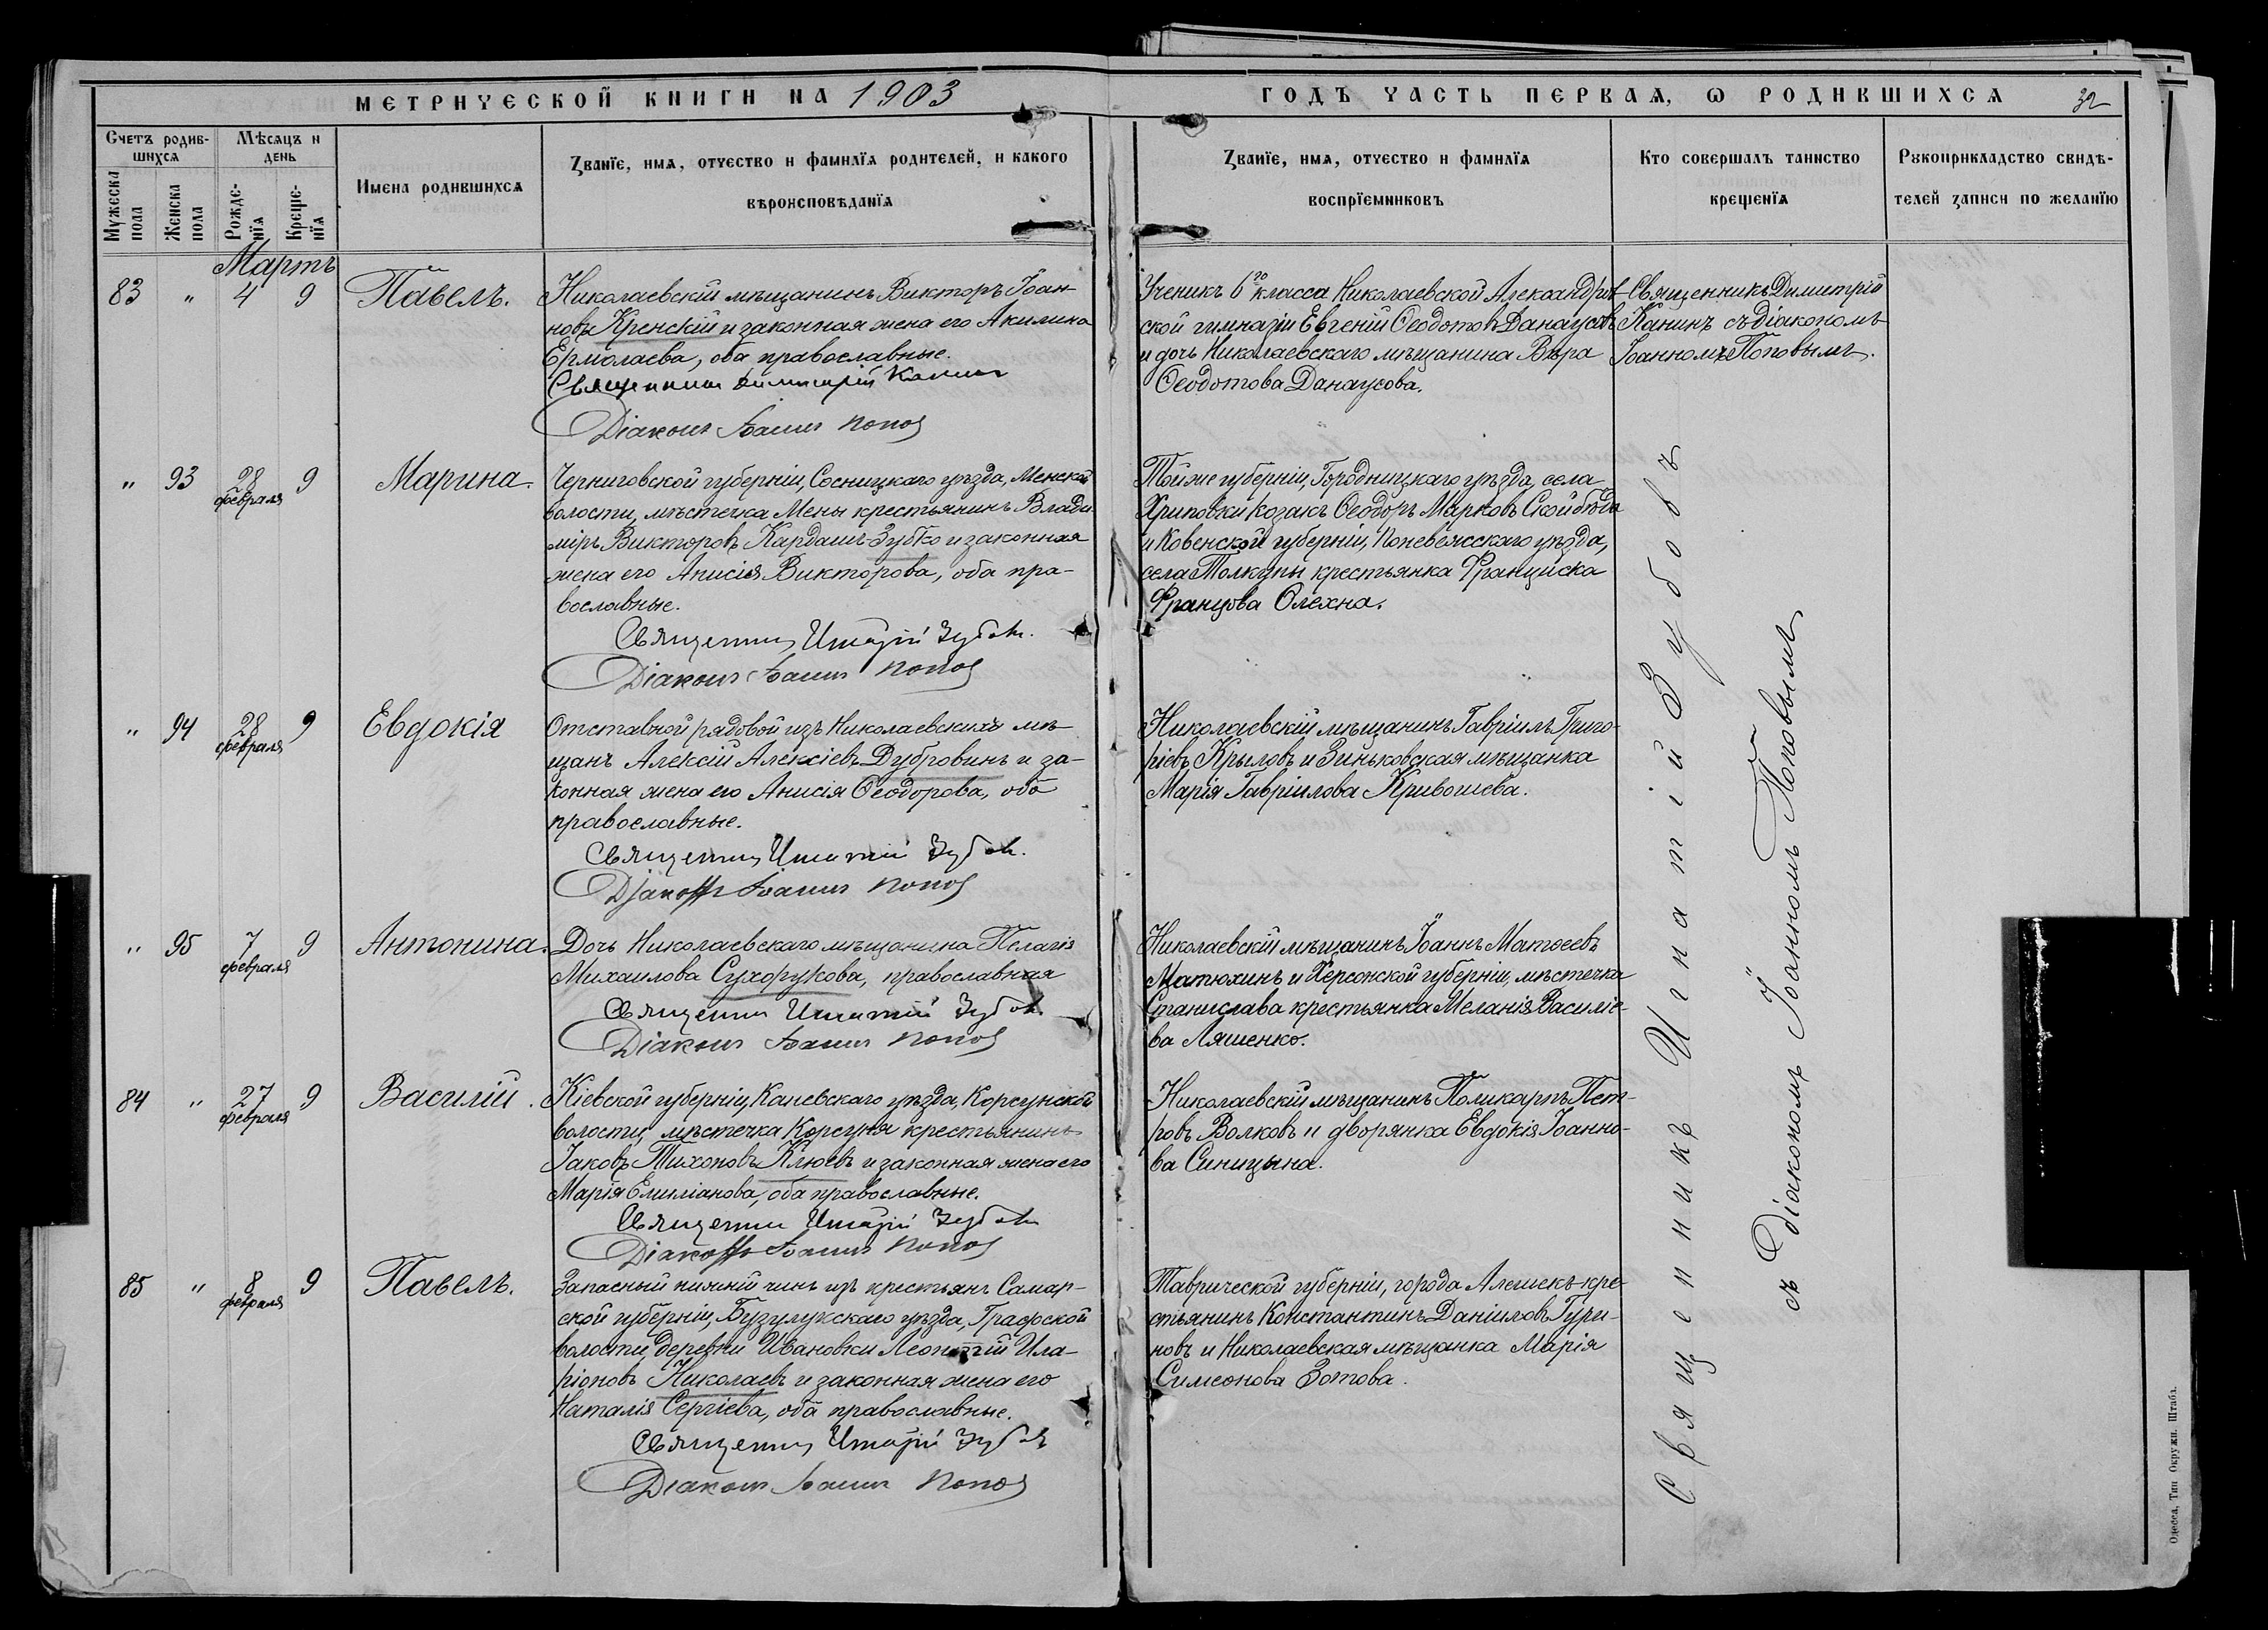 МЕТРИЧЕСКОЙ КНИГИ НА 1903
ГОДЪ ЧАСТЬ ПЕРВАѦ, Ѡ РОДИВШИХСѦ 32
Счетъ родив-
шихсѧ
Мѣсѧцъ и
день
Мꙋжеска
пола
Женска
пола
Рожде-
нїѧ
Креще-
нїѧ
Имена родившихсѧ
Званїе, имѧ, отчество и фамилїѧ родителей, и какого
вѣроисповѣданїѧ
Званїе, имѧ, отчество и фамилїѧ
воспрїемниковъ
Кто совершалъ таинство
крещенїѧ
Рꙋкоприкладство свидѣ-
телей записи по желанїю
Мартъ
83 " 4 9 Павелъ.
Николаевскій мѣщанинъ Викторъ Іоан-
новъ Кренскій и законная жена его Акилина
Ермолаева, оба православные.
Священникъ Димитрій Канинъ
Діаконъ Іоаннъ Поповъ
Ученикъ 6го класса Николаевской Александров-
ской гимназіи Евгеній Ѳеодотовъ Данаусовъ
и дочь Николаевскаго мѣщанина Вѣра
Ѳеодотова Данаусова.
Священникъ Димитрій
Канинъ съ діакономъ
Іоанномъ Поповымъ.
" 93 28 9 Марина.
февраля
Черниговской губерніи, Сосницкаго уѣзда, Менской
волости, мѣстечка Мены крестьянинъ Влади
міръ Викторовъ Кардашъ-Зубко и законная
жена его Анисія Викторова, оба пра-
вославные.
Священникъ Игнатій Зубовъ.
Діаконъ Іоаннъ Поповъ
Той же губерніи, Городницкаго уѣзда, села
Хриповки козакъ Ѳеодоръ Марковъ Скойбѣда
и Ковенской губерніи, Поневежскаго уѣзда,
села Толкуны крестьянка Франциска
Францова Олехна.
" 94 28 9 Евдокія
февраля
Отставной рядовой изъ Николаевскихъ мѣ-
щанъ Алексій Алексіевъ Дубровинъ и за-
конная жена его Анисія Ѳеодорова, оба
православные.
Священникъ Игнатій Зубовъ.
Діаконъ Іоаннъ Поповъ
Николаевскій мѣщанинъ Гавріилъ Григо-
ріевъ Крыловъ и Зиньковская мѣщанка
Марія Гавріилова Кривошева.
" 95 7 9 Антонина.
февраля
Дочь Николаевскаго мѣщанина Пелагія
Михаилова Сухорукова, православная
Священникъ Игнатій Зубовъ.
Діаконъ Іоаннъ Поповъ
Николаевскій мѣщанинъ Іоаннъ Матѳеевъ
Матюхинъ и Херсонской губерніи, мѣстечка
Станислава крестьянка Меланія Василіе-
ва Ляшенко.
84 " 27 9 Василій.
февраля
Кіевской губерніи, Каневскаго уѣзда, Корсунской
волости, мѣстечка Корсуня крестьянинъ
Іаковъ Тихоновъ Клюевъ и законная жена его
Марія Емиліанова, оба православные.
Священникъ Игнатій Зубовъ
Діаконъ Іоаннъ Поповъ
Николаевскій мѣщанинъ Поликарпъ Пет-
ровъ Волковъ и дворянка Евдокія Іоанно-
ва Синицына.
85 " 8 9 Павелъ.
февраля
Запасный нижній чинъ изъ крестьянъ Самар-
ской губерніи, Бузулукскаго уѣзда, Графской
волости, деревни Ивановки Леонтій Ила-
ріоновъ Николаевъ и законная жена его
Наталія Сергіева, оба православные.
Священникъ Игнатій Зубовъ
Діаконъ Іоаннъ Поповъ
Таврической губерніи, города Алешекъ кре-
стьянинъ Константинъ Даніиловъ Гури-
новъ и Николаевская мѣщанка Марія
Симеонова Зотова.
Священникъ Игнатій Зубовъ
съ діакономъ Іоанномъ Поповымъ
Одесса, Тип. Окружн. Штаба.